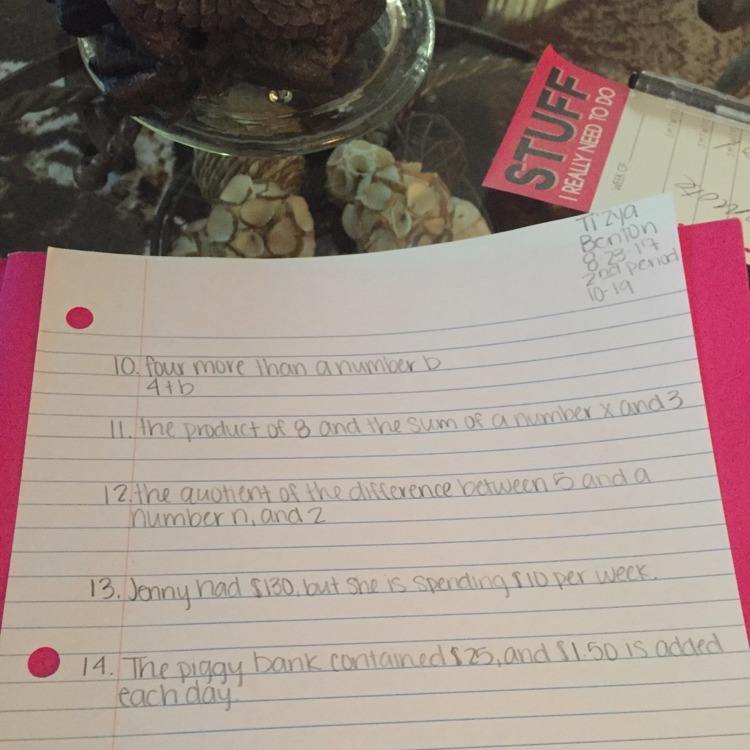 STUFF
I REALLY NEED TO DO
WEEK OF
Tizya
Benton
8-23-17
2nd period
10-19
10. four more than a number b
4+b
11. the product of 8 and the sum of a number x and 3
12. the quotient of the difference between 5 and a
number n, and 2
13. Jenny had $130, but she is spending $10 per week.
14. The piggy bank contained $25, and $1.50 is added
each day.